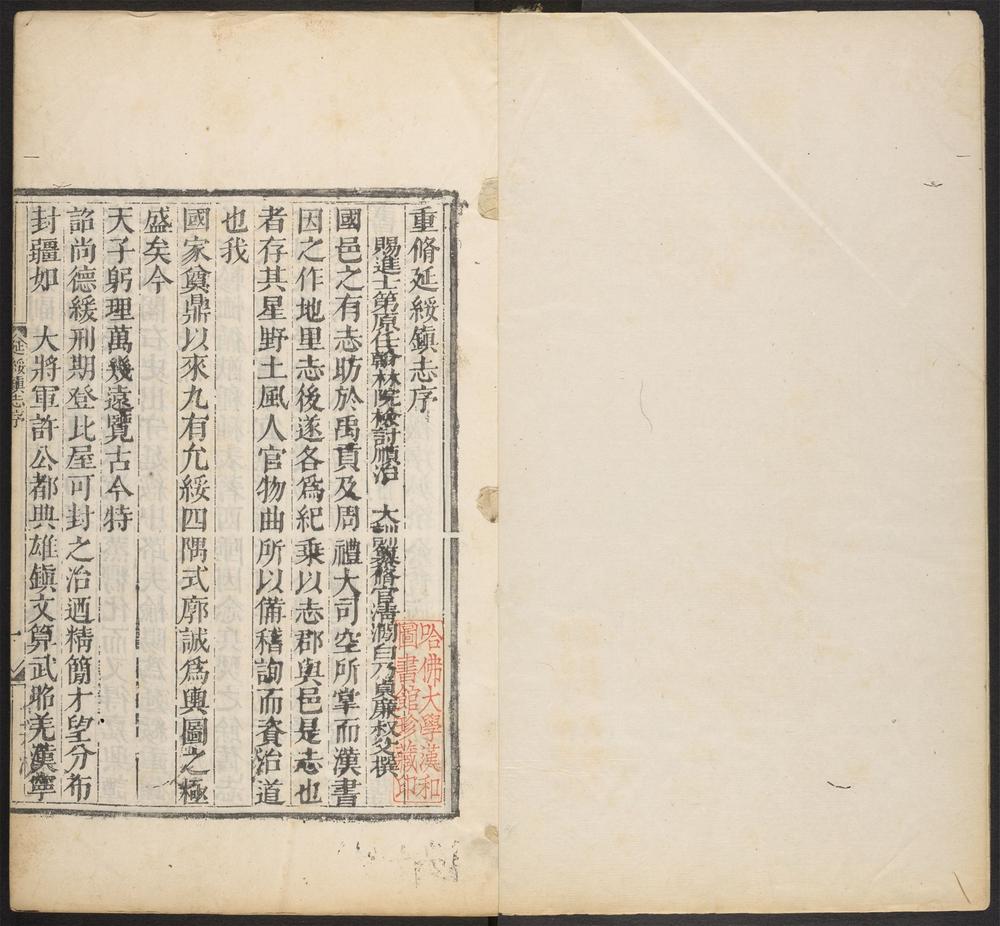 重脩延綏鎮志序
賜進士第原任翰林院檢討順治　大訓纂脩官淸澗白乃貞廉叔父撰
國邑之有志昉於禹貢及周禮大司空所掌而漢書
因之作地里志後遂各爲紀乘以志郡與邑是志也
者存其星野土風人官物曲所以備稽詢而資治道
也我
國家奠鼎以來九有允綏四隅式廓誠爲輿圖之極
盛矣今
天子躬理萬幾遠覽古今特
詔尚德緩刑期登比屋可封之治迺精簡才望分布
封疆如　大將軍許公都興雄鎮文算武略羌漢寧
延綏鎮志序
一
哈佛大學漢和
圖書館珍藏印